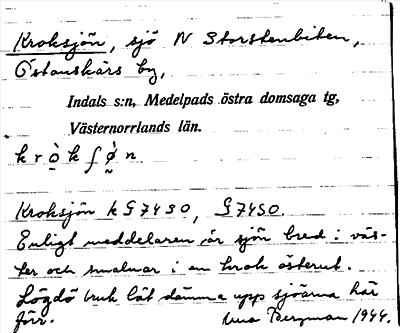 Kroksjön, sjö N Storstenbiten,
Östanskärs by,
Indals s:n, Medelpads östra domsaga tg,
Västernorrlands län.
k r ò k ʃ ø̀ n
Kroksjön k G7450, G7450.
Enligt meddelaren är sjön bred i väs-
ter och smalnar i en krok österut.
Lögdö bruk lät dämma upp sjöarna här
förr. Bergman 1944.